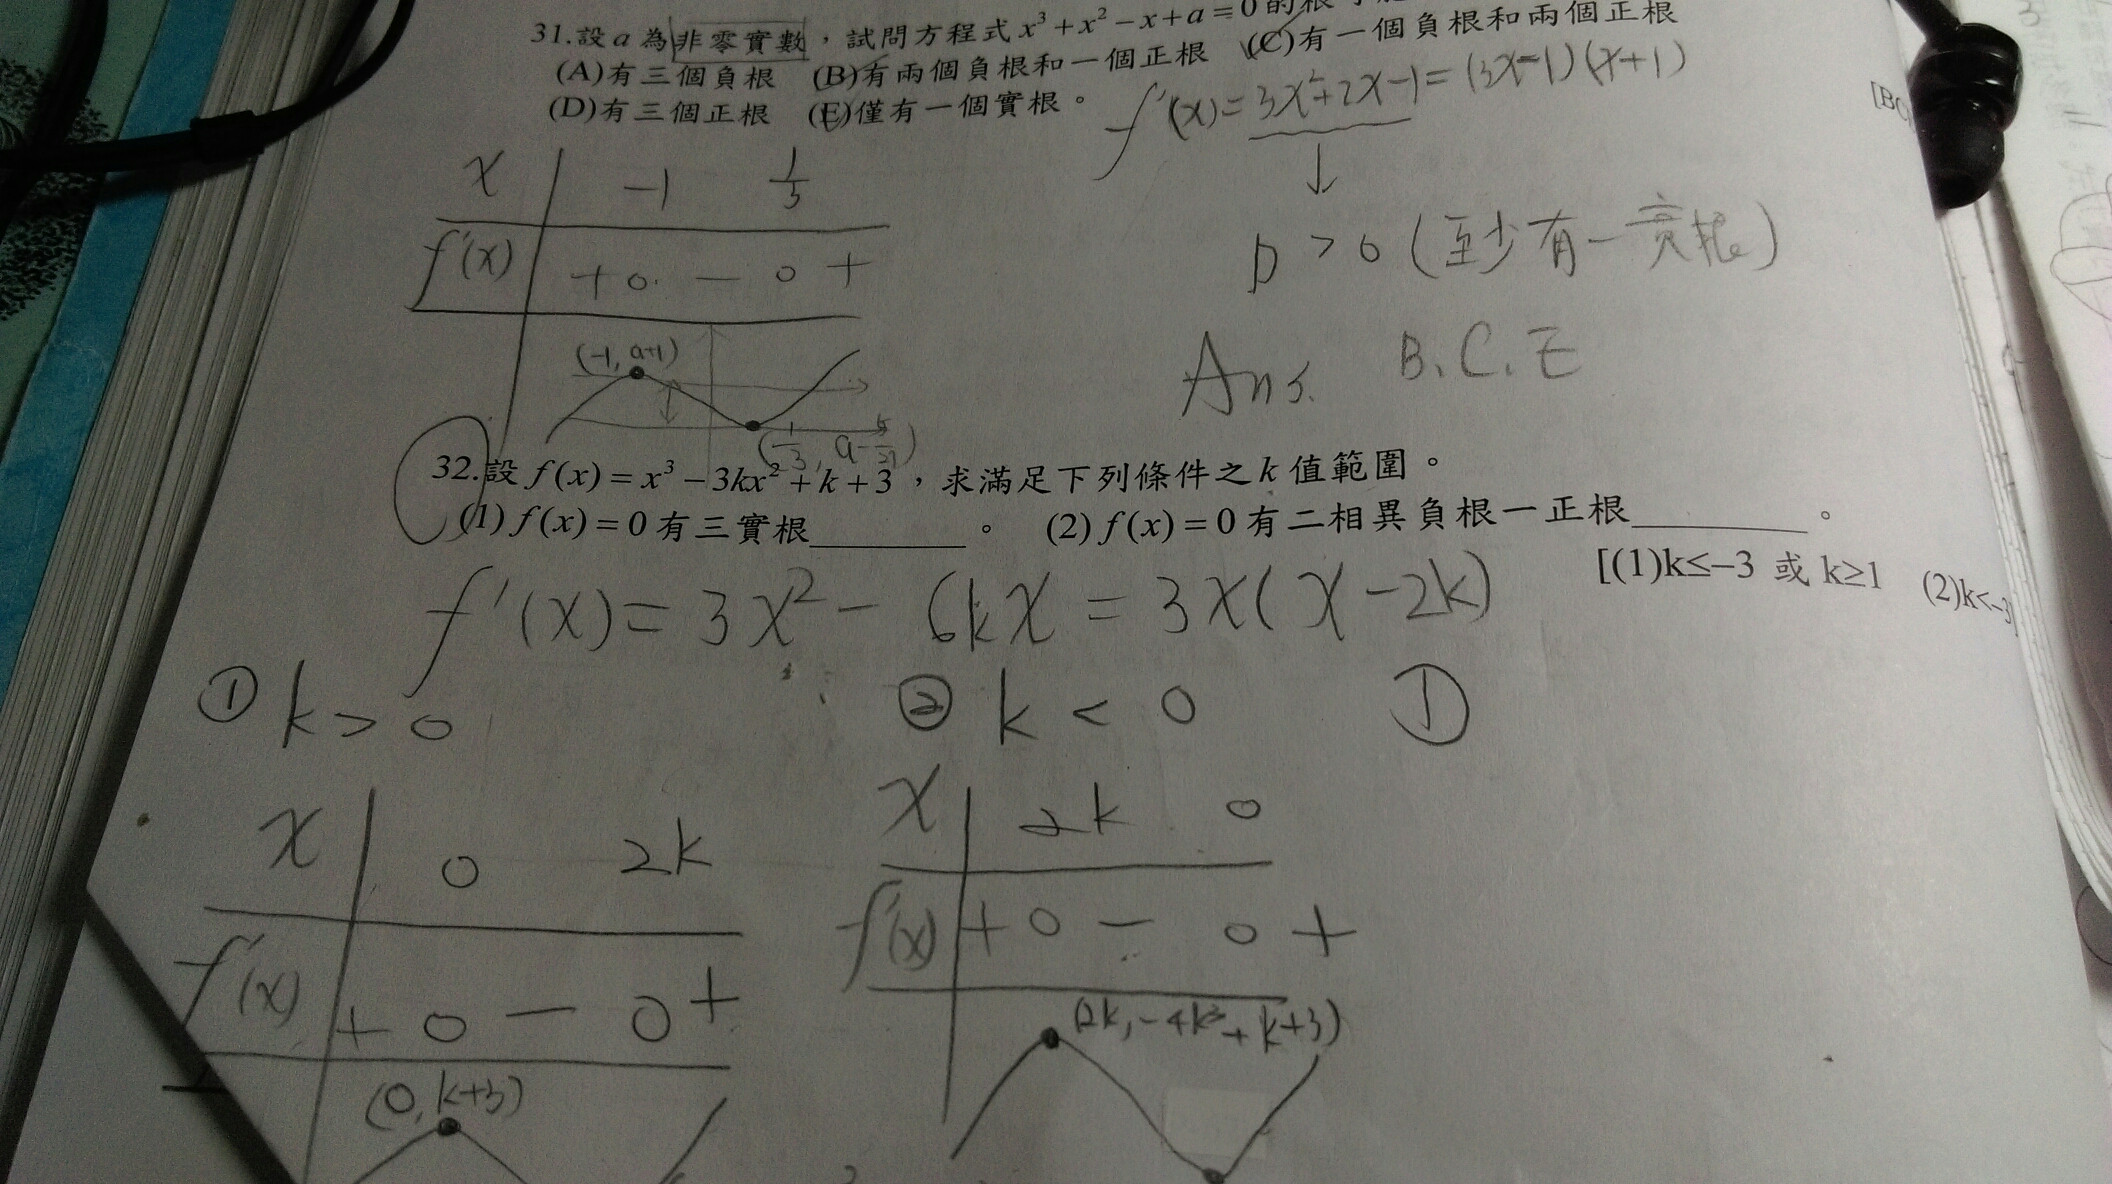 31.設 a 為非零實數,試問方程式 x³+x²−x+a=0 的根
(A)有三個負根 (B)有兩個負根和一個正根 (C)有一個負根和兩個正根
(D)有三個正根 (E)僅有一個實根。
f'(x)=3x²+2x-1=(3x-1)(x+1)
[BC
x -1 1/3
f'(x) + 0 - 0 +
D>0(至少有一實根)
(-1, a+1)
Ans. B.C.E
(1/3, a-5/27)
32.設 f(x)=x³−3kx²+k+3,求滿足下列條件之 k 值範圍。
(1) f(x)=0 有三實根________。 (2) f(x)=0 有二相異負根一正根________。
[(1)k≤−3 或 k≥1 (2)k<−3]
f'(x)=3x²-6kx=3x(x-2k)
① k>0 ② k<0 D
x 0 2k
f'(x) + 0 - 0 +
(0, k+3)
x 2k 0
f'(x) + 0 - 0 +
(2k, -4k³+k+3)